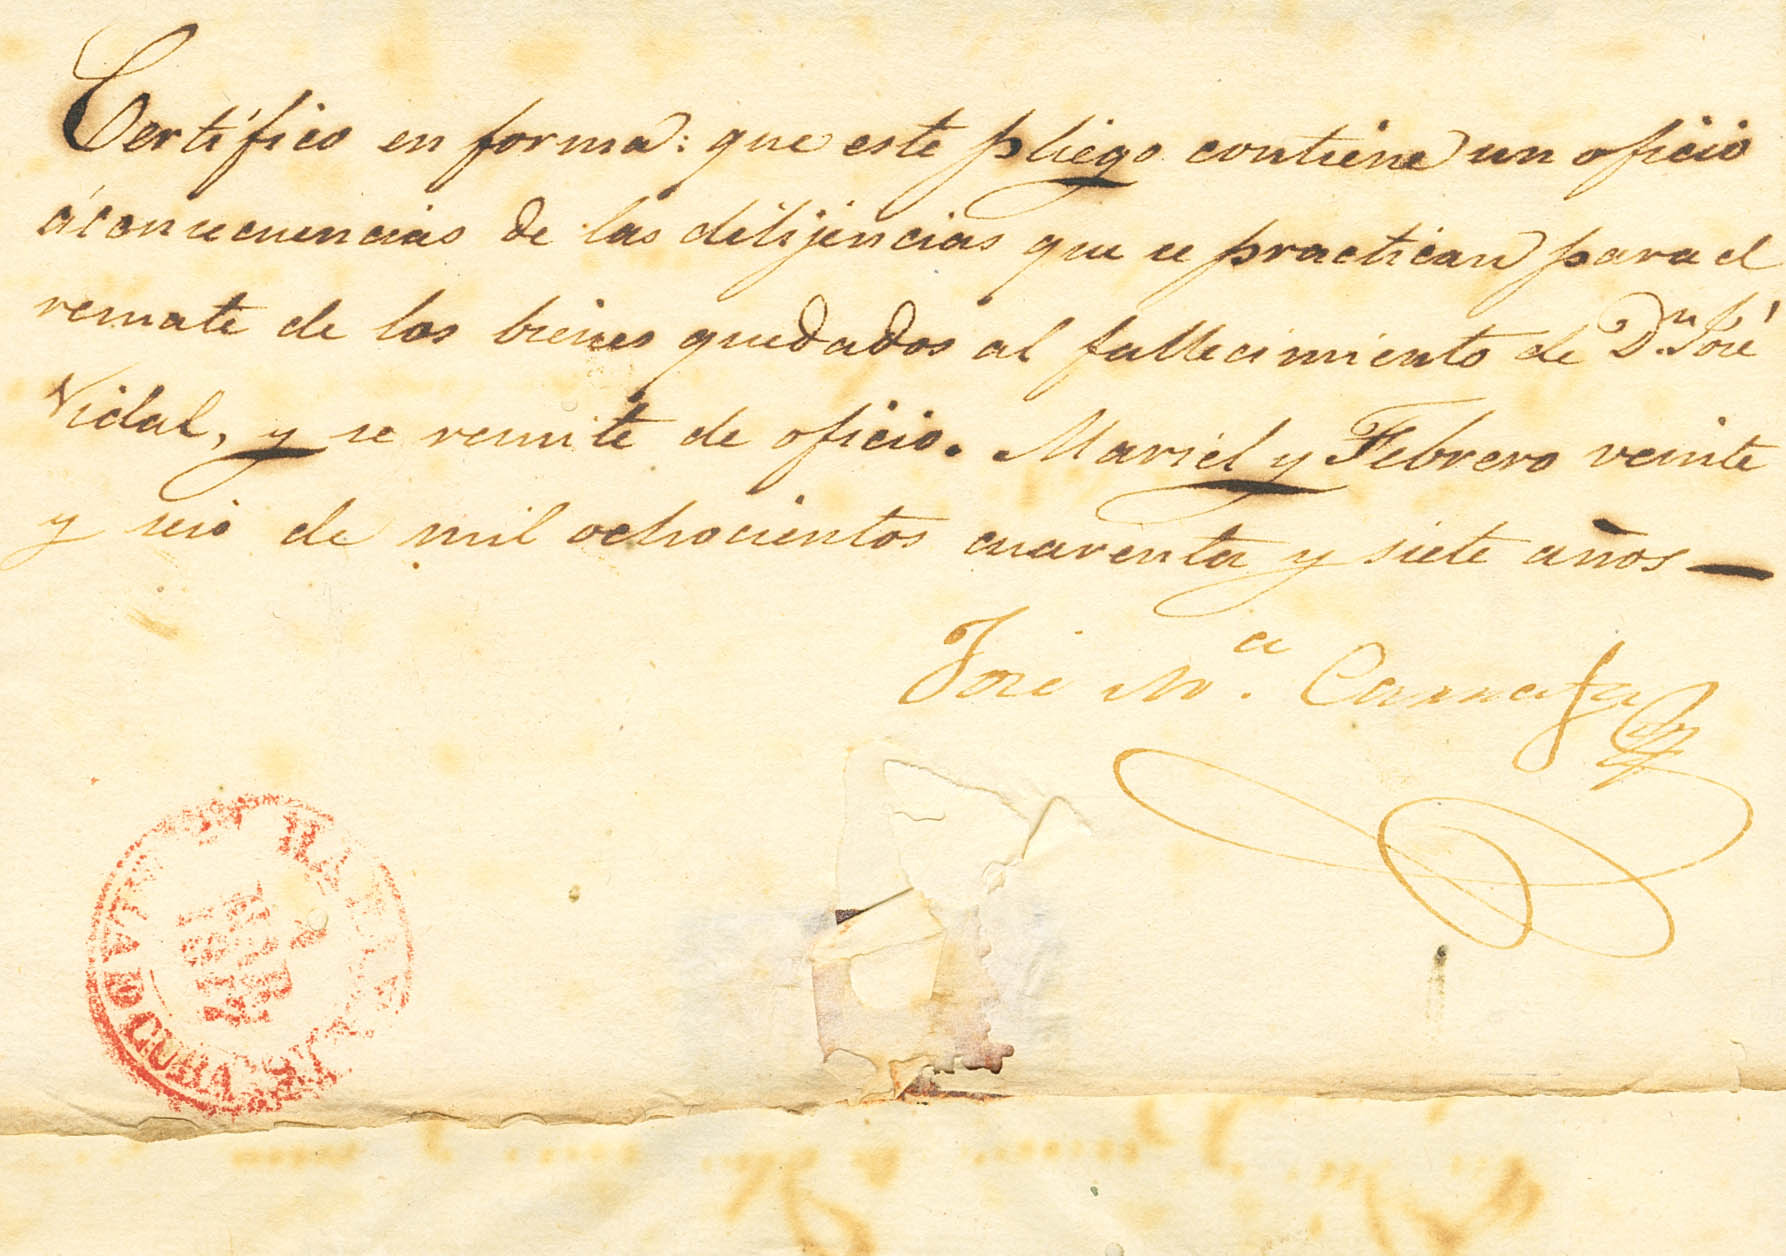 Certifico en forma: que este pliego contiene un oficio
á consecuencias de las dilijencias que se practican para el
remate de los bienes quedados al fallecimiento de Dn. José
Vidal, y se remite de oficio. Mariel y Febrero veinte
y seis de mil ochocientos cuarenta y siete años —
José Ma.
HABANA
CUBA